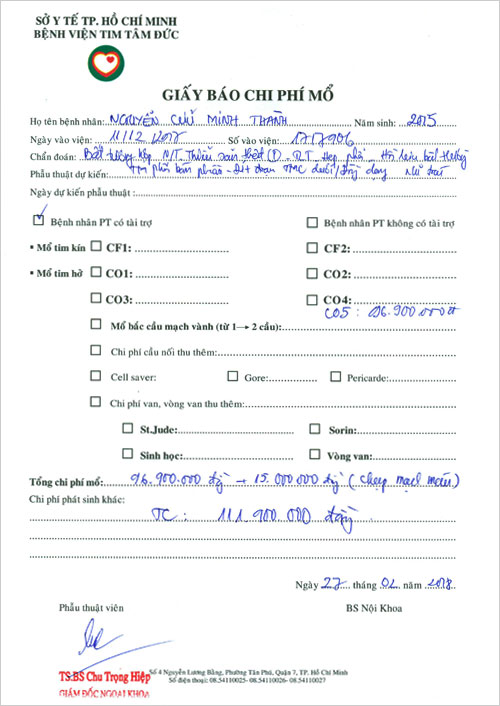 SỞ Y TẾ TP. HỒ CHÍ MINH
BỆNH VIỆN TIM TÂM ĐỨC
GIẤY BÁO CHI PHÍ MỔ
Họ tên bệnh nhân: NGUYỄN CHỬ MINH THÀNH Năm sinh: 2015
Ngày vào viện: 11/12/2017 Số vào viện: 1717906
Chẩn đoán: Bất tương hợp N/T Thiểu sản thất (T) Hẹp phổi
Phẫu thuật dự kiến: TM phổi bán phần TMC dưới
Ngày dự kiến phẫu thuật:
Bệnh nhân PT có tài trợ Bệnh nhân PT không có tài trợ
• Mổ tim kín CF1: CF2:
• Mổ tim hở CO1: CO2:
CO3: CO4:
CO5: 96.900.000đ
Mổ bắc cầu mạch vành (từ 1→ 2 cầu):
Chi phí cầu nối thu thêm:
Cell saver: Gore: Pericarde:
Chi phí van, vòng van thu thêm:
St.Jude: Sorin:
Sinh học: Vòng van:
Tổng chi phí mổ: 96.900.000 đồng + 15.000.000 đồng (chụp mạch máu)
Chi phí phát sinh khác:
TC: 111.900.000 đồng
Ngày 27 tháng 02 năm 2018
Phẫu thuật viên BS Nội Khoa
TS.BS Chu Trọng Hiệp
GIÁM ĐỐC NGOẠI KHOA
Số 4 Nguyễn Lương Bằng, Phường Tân Phú, Quận 7, TP. Hồ Chí Minh
Số điện thoại: 08.54110025- 08.54110026- 08.54110027